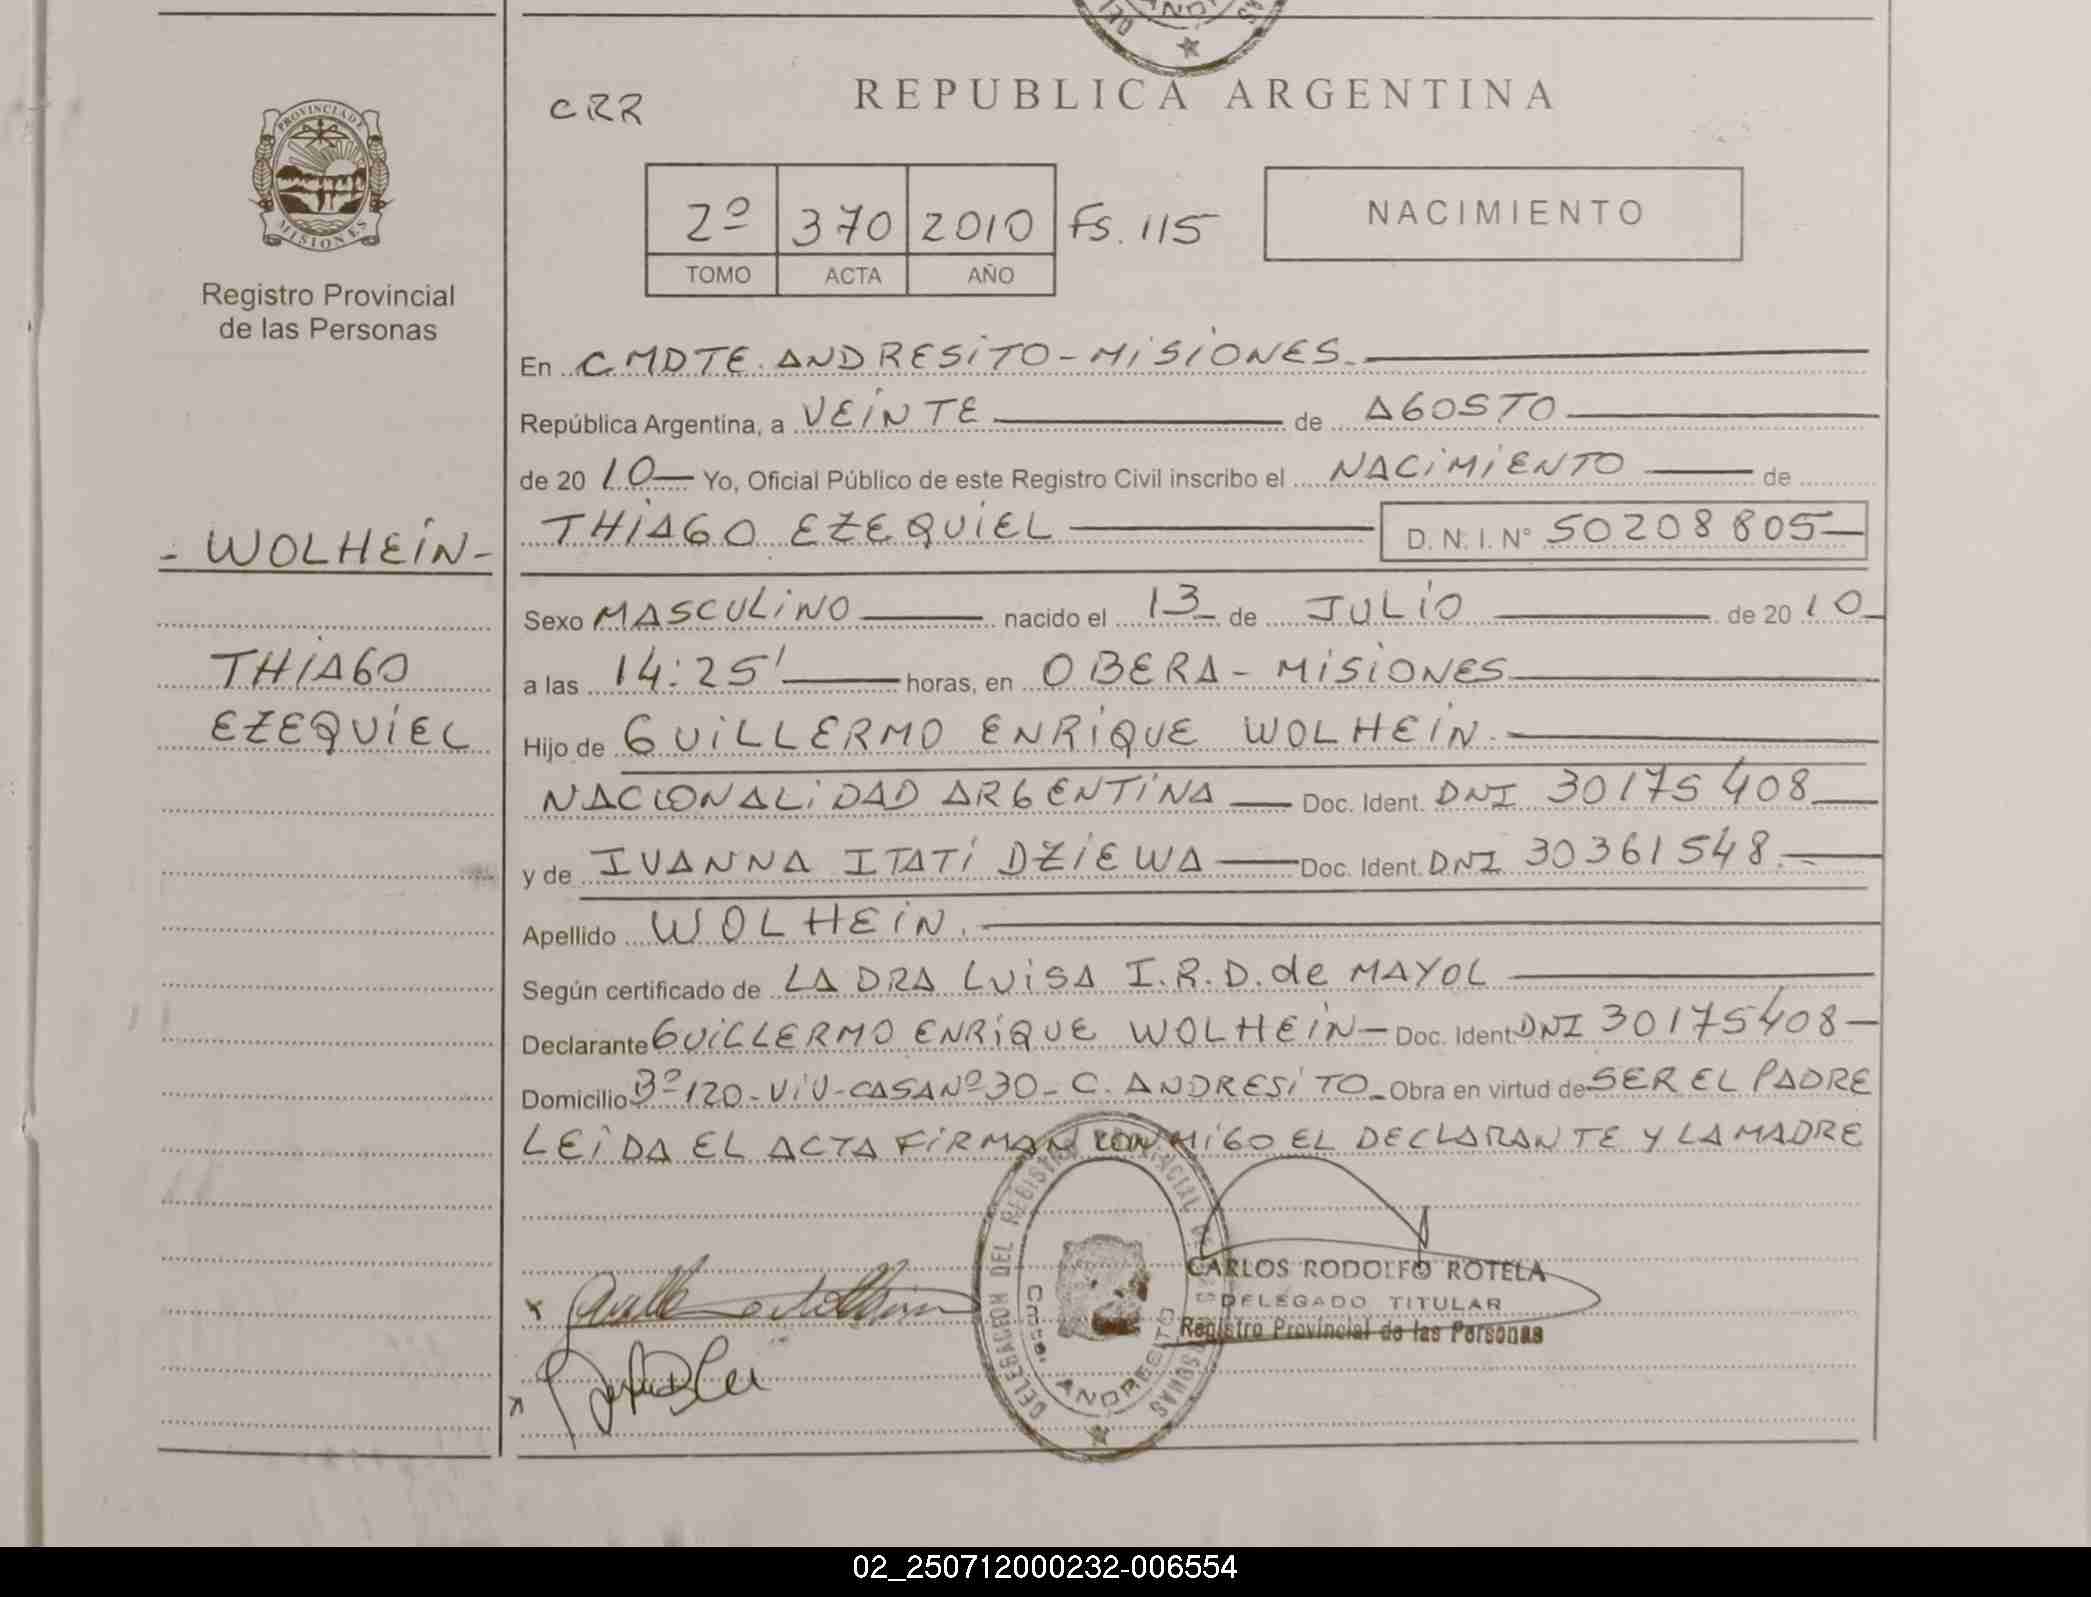 REPUBLICA ARGENTINA
CRR
PROVINCIA DE
MISIONES
Registro Provincial
de las Personas
2º 370 2010 Fs. 115
TOMO ACTA AÑO
NACIMIENTO
En CMDTE. ANDRESITO - MISIONES.
República Argentina, a VEINTE de AGOSTO
de 20 10 Yo, Oficial Público de este Registro Civil inscribo el NACIMIENTO de
- WOLHEIN -
THIAGO EZEQUIEL D. N. I. N° 50208805
Sexo MASCULINO nacido el 13 de JULIO de 20 10
THIAGO
a las 14:25' horas, en OBERA - MISIONES
EZEQUIEL
Hijo de GUILLERMO ENRIQUE WOLHEIN.
NACIONALIDAD ARGENTINA Doc. Ident. DNI 30175408
y de IVANNA ITATI DZIEWA Doc. Ident. DNI 30361548.
Apellido WOLHEIN.
Según certificado de LA DRA LUISA I.R.D. de MAYOL
Declarante GUILLERMO ENRIQUE WOLHEIN Doc. Ident. DNI 30175408
Domicilio Bº 120 - VIV - CASA Nº 30 - C. ANDRESITO Obra en virtud de SER EL PADRE
LEIDA EL ACTA FIRMAN CONMIGO EL DECLARANTE Y LA MADRE
DELEGACION DEL REGISTRO PROVINCIAL DE LAS PERSONAS
ANDRESITO
CARLOS RODOLFO ROTELA
DELEGADO TITULAR
Registro Provincial de las Personas
02_250712000232-006554